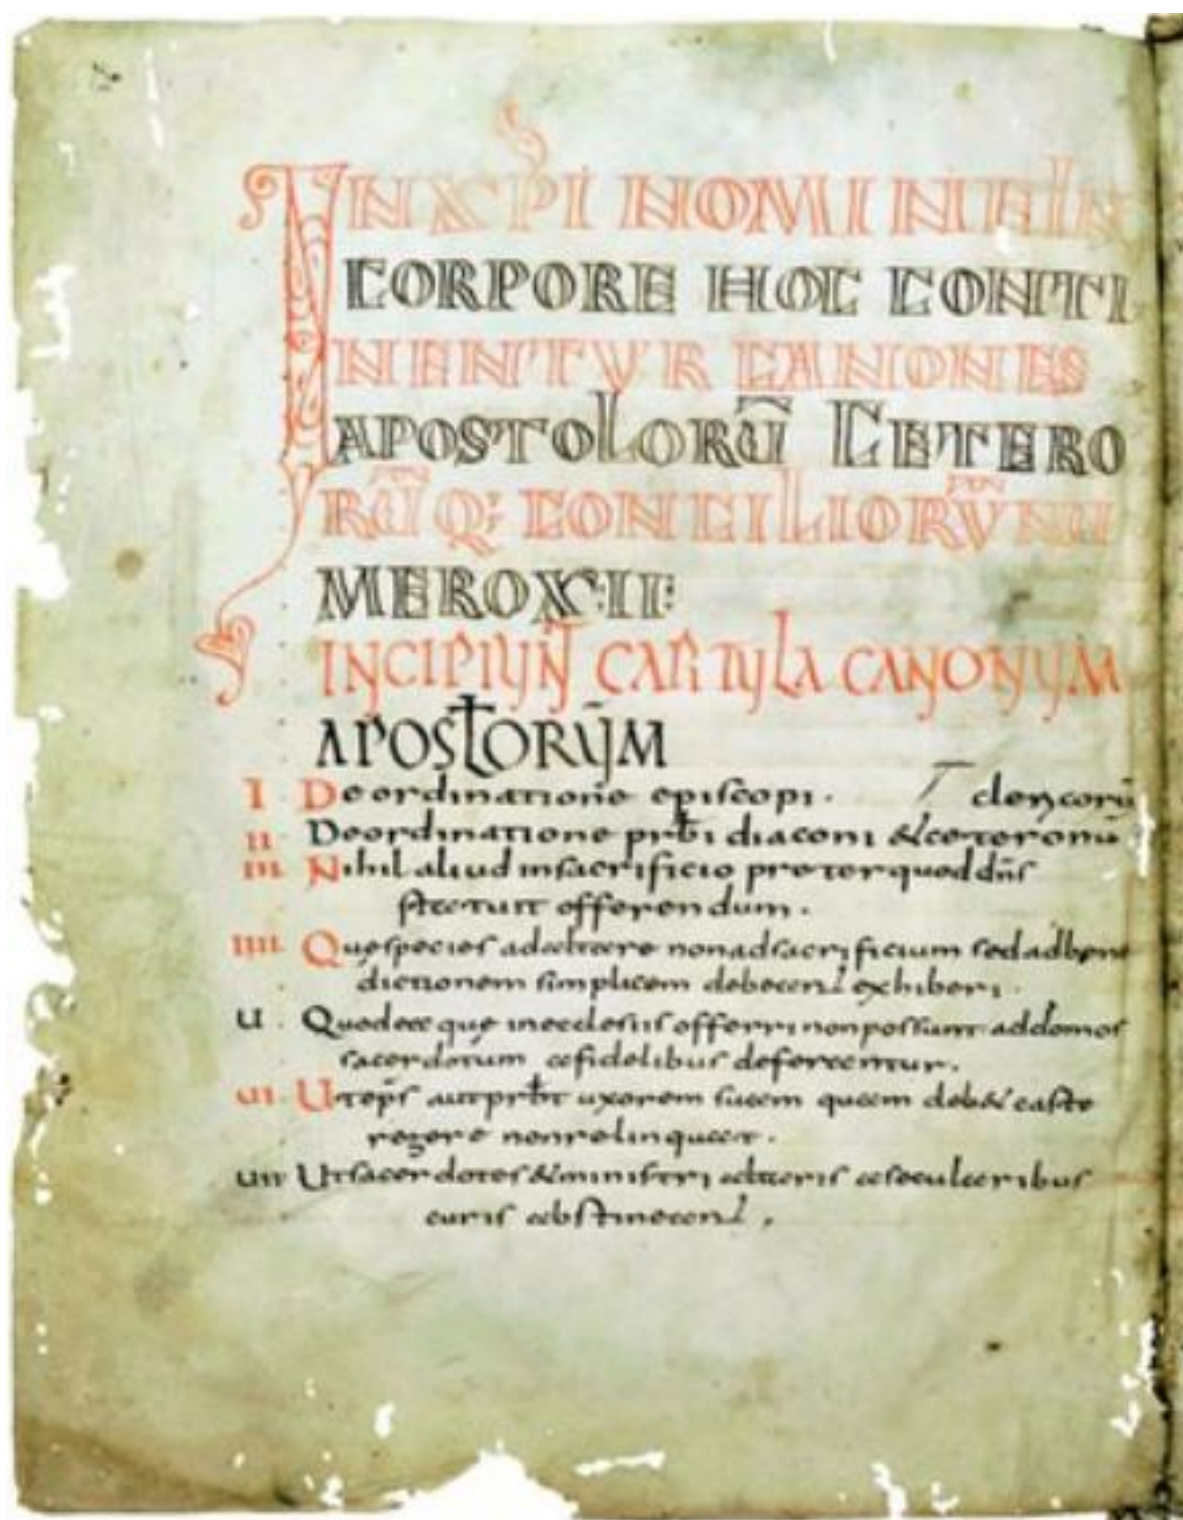 IN XPI NOMINE IN
CORPORE HOC CONTI
NENTVR CANONES
APOSTOLORŪ CETERO
RŪ Q; CONCILIORVM NU
MERO XII:
INCIPIUNT CARTULA CANONUM
APOSTORUM
I De ordinatione episcopi. clericorū
II De ordinatione prbi diaconi & ceterorum
III Nihil aliud in sacrificio preter quod dn̄s
statuit offerendum.
IIII Que species ad altare non ad sacrificium sed ad bene
dictionem simplicem debeant exhiberi.
U. Quod ea quę in eclesiis offerri non possunt ad domos
sacerdotum a fidelibus deferantur.
UI Ut eps̄ aut prbt uxorem suam quam deb& caste
regere non relinquat.
UII Ut sacerdotes & ministri alteris a secularibus
curis abstineant.